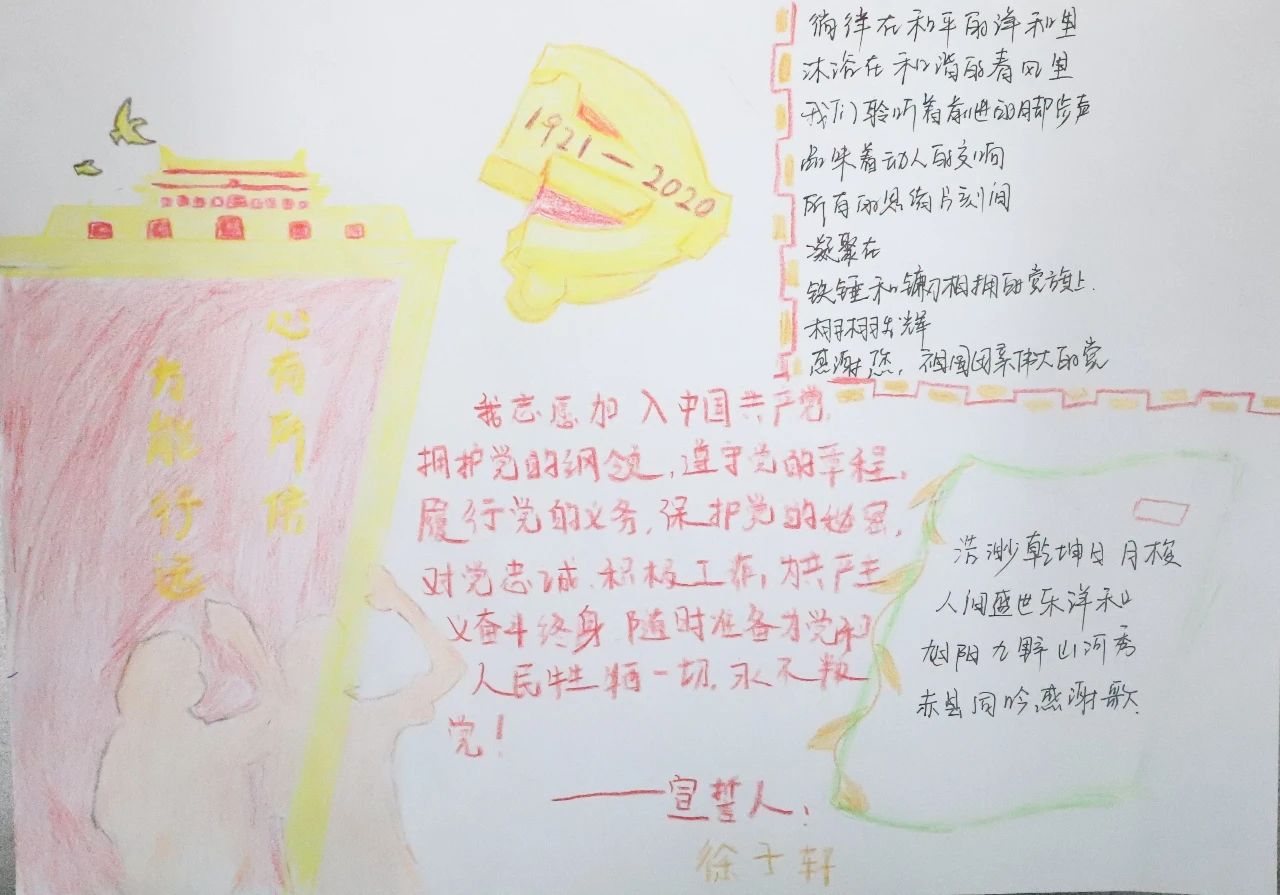 徜徉在和平的洋和里
沐浴在和谐的春风里
我们聆听着前进的脚步声
品味着动人的交响
所有的思绪片刻间
凝聚在
铁锤和镰刀相拥的党旗上.
栩栩发辉
感谢您，祖国因亲伟大的党
1921—2020
心有所信
方能行远
我志愿加入中国共产党，
拥护党的纲领，遵守党的章程，
履行党的义务，保护党的秘密，
对党忠诚，积极工作，为共产主
义奋斗终身，随时准备为党和
人民牺牲一切，永不叛
党！
——宣誓人：
徐子轩
浩渺乾坤日月梭
人间盛世乐洋和
旭阳九野山河秀
赤县同吟感谢歌.